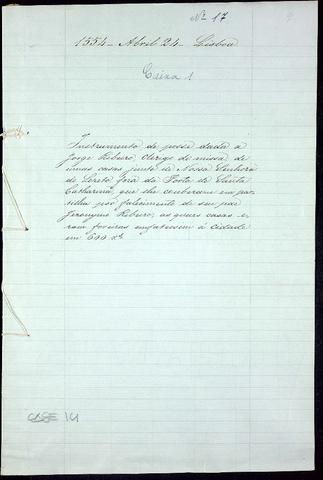 Nº 17
1554 - Abril 24 - Lisboa
Caixa 1
Instrumento de posse dada a
Jorge Ribeiro, clerigo de missa, de
umas casas junto de Nossa Senhora
de Loreto fora da Porta de Santa
Catharina, que lhe couberam em par-
tilha por falecimento de seu pae
Jeronymo Ribeiro, as quaes casas e-
ram foreiras emfatiosem á cidade
em 600 rs.
CASE 14